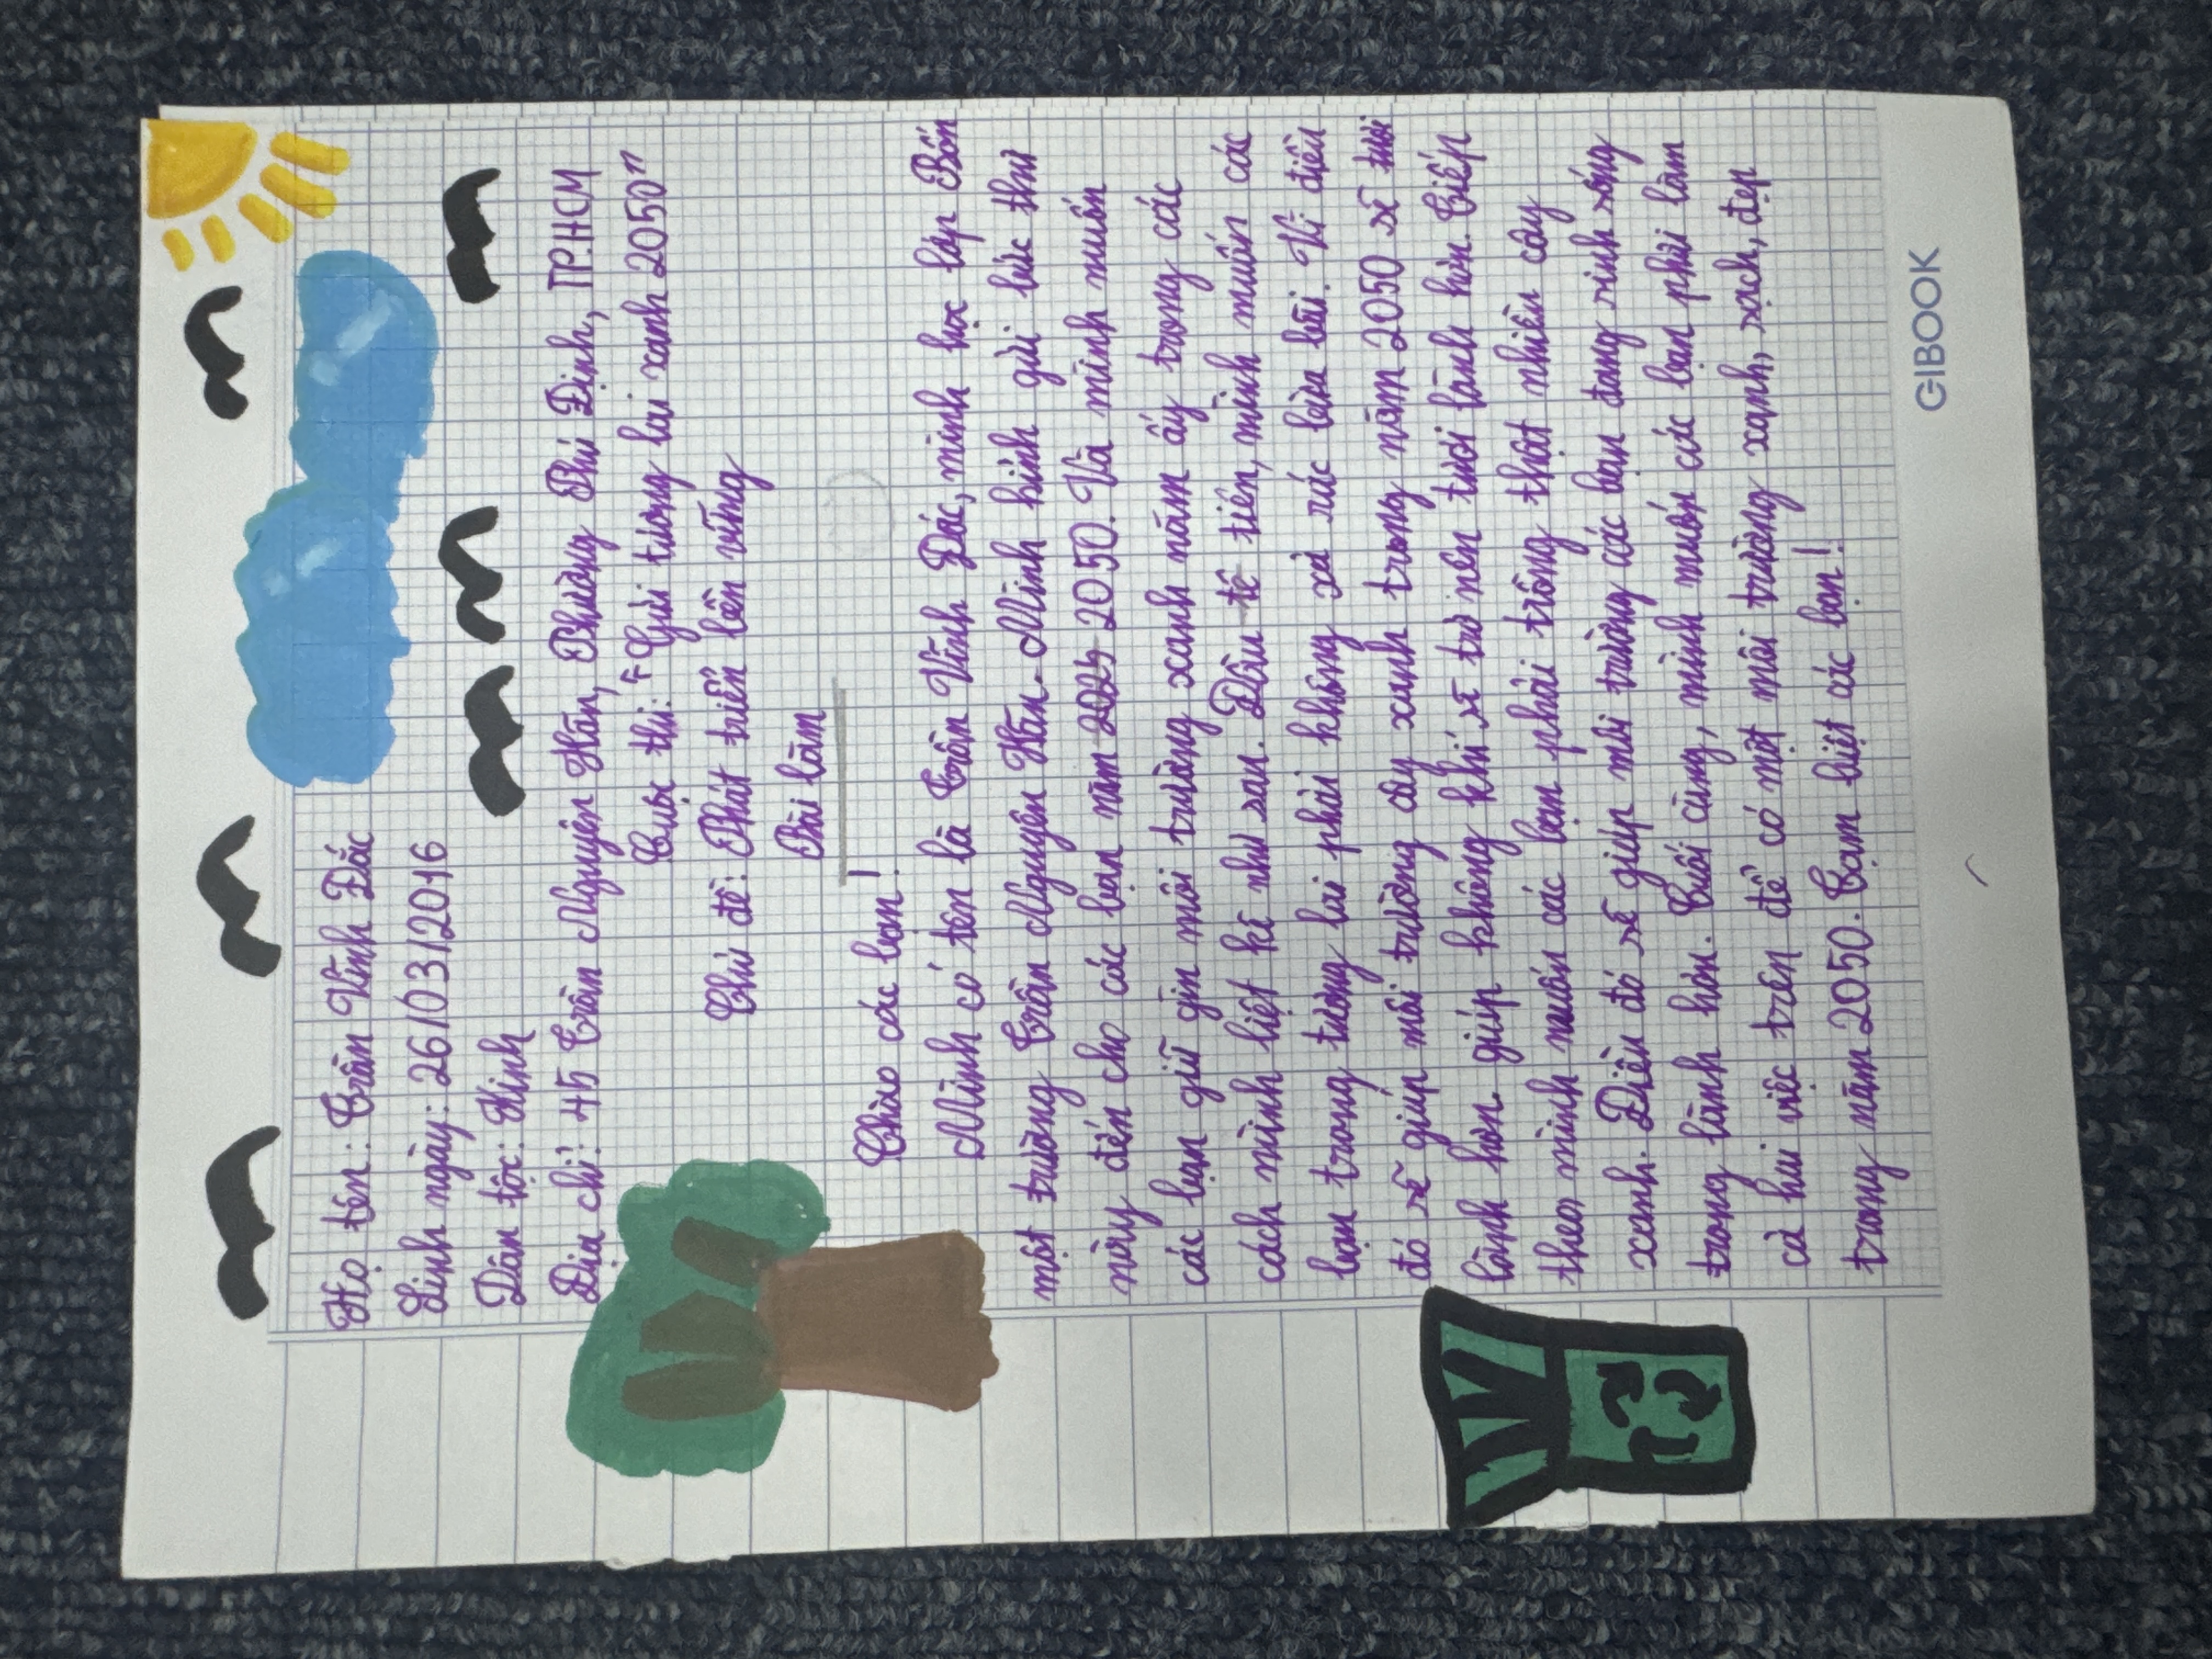 Họ tên: Trần Vĩnh Đắc
Sinh ngày: 26/03/2016
Dân tộc: Kinh
Địa chỉ: 45 Trần Nguyên Hãn, Phường Phú Định, TP.HCM
Cuộc thi: "Gửi tương lai xanh 2050"
Chủ đề: Phát triển bền vững
Bài làm
Chào các bạn!
Mình có tên là Trần Vĩnh Đắc, mình học lớp Bốn
một trường Trần Nguyên Hãn. Mình kính gửi bức thư
này đến cho các bạn năm 2050. Và mình muốn
các bạn giữ gìn môi trường xanh năm ấy trong các
cách mình liệt kê như sau. Đầu tê tiên, mình muốn các
bạn trong tương lai phải không xả rác bừa bãi. Vì điều
đó sẽ giúp môi trường cây xanh trong năm 2050 sẽ tươi
lành hơn. giúp không khí sẽ trở nên tươi lành hơn. Tiếp
theo mình muốn các bạn phải trồng thật nhiều cây
xanh. Điều đó sẽ giúp môi trường các bạn đang sinh sống
trong lành hơn. Cuối cùng, mình muốn các bạn phải làm
cả hai việc trên để có một môi trường xanh, sạch, đẹp
trong năm 2050. Tạm biệt các bạn!
GIBOOK